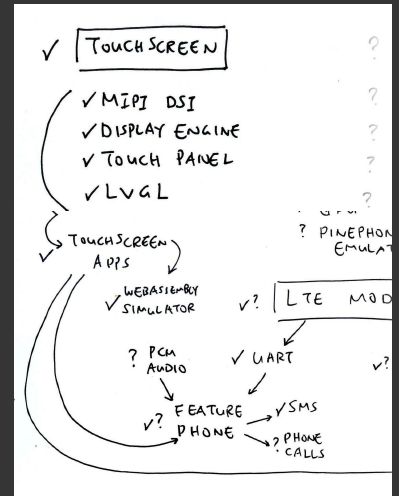 ✓ TOUCHSCREEN
?
✓ MIPI DSI
?
✓ DISPLAY ENGINE
?
✓ TOUCH PANEL
?
✓ LVGL
?
✓ TOUCHSCREEN
APPS
? PINEPHON
EMULAT
✓ WEBASSEMBLY
SIMULATOR
✓? LTE MOD
? PCM
AUDIO
✓ UART
✓?
✓? FEATURE
PHONE
✓ SMS
? PHONE
CALLS